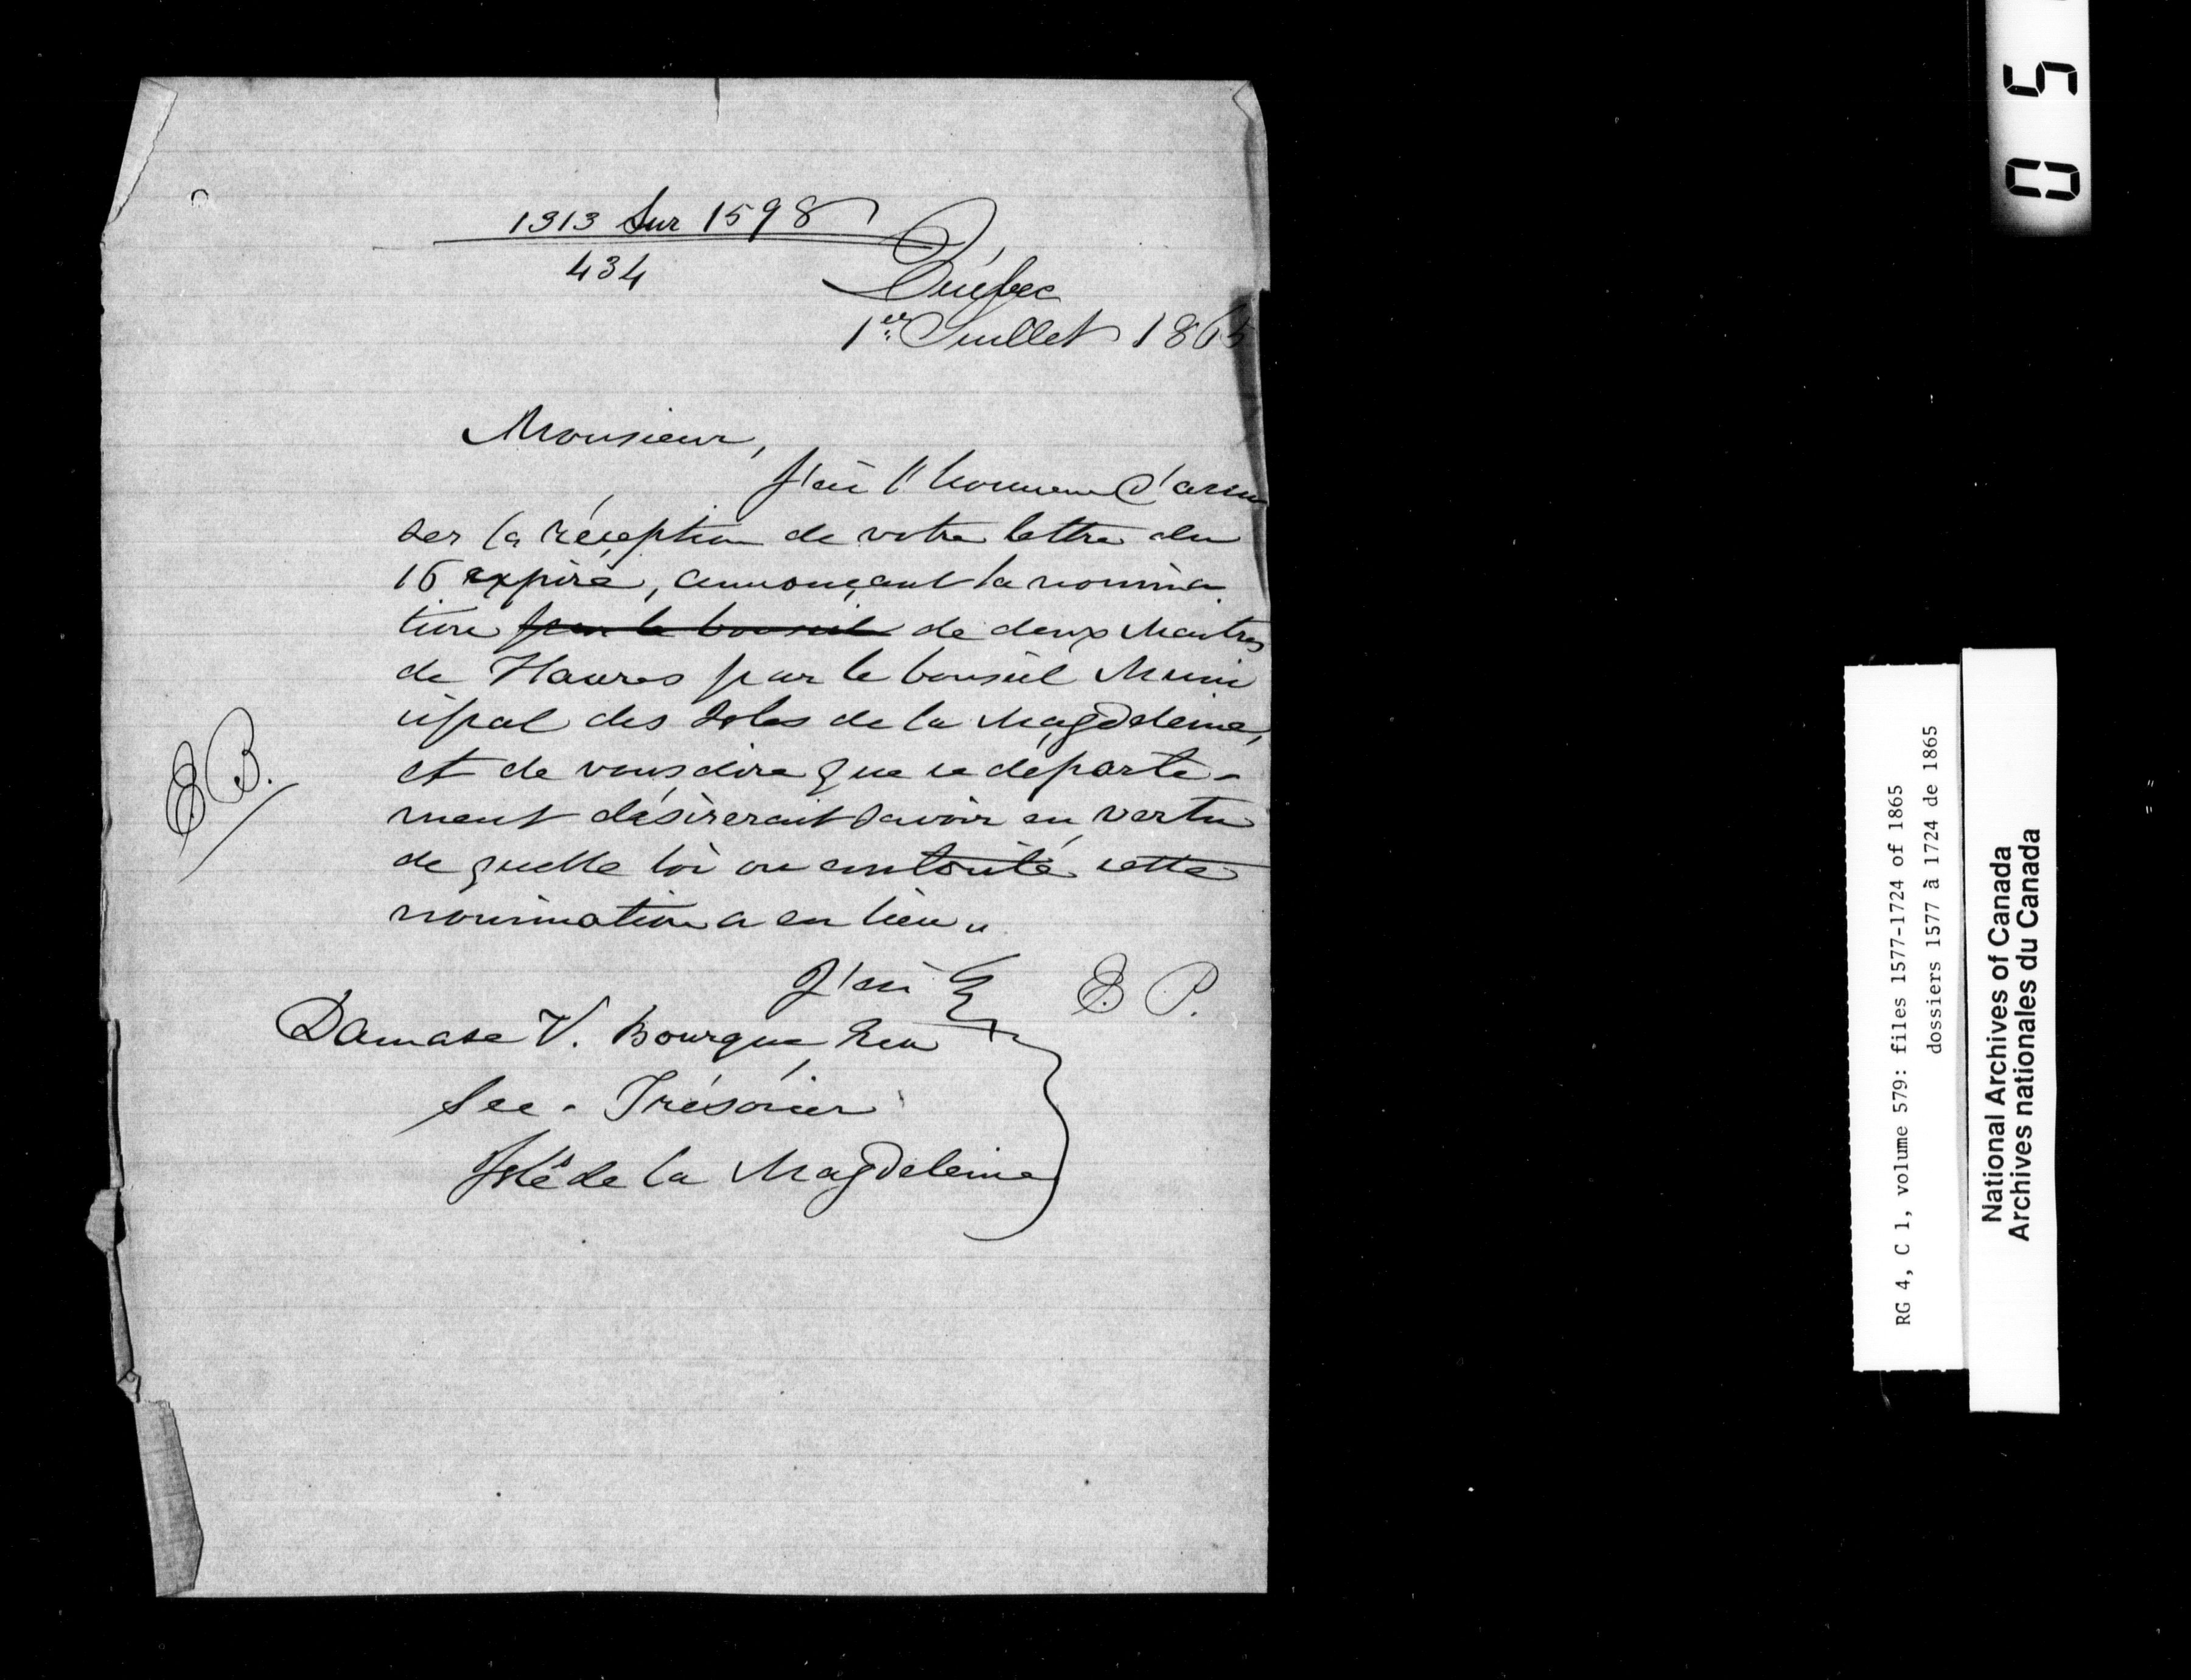 1313 Sur 1598
434
Québec
1er Juillet 1865
Monsieur,
J'ai l'honneur d'accu
ser la réception de votre lettre du
16 expiré, annonçant la nomina
tion par le Conseil de deux Maitres
de Havres par le Conseil Muni
cipal des Isles de la Magdeleine,
et de vous dire que ce départe-
ment désirerait savoir en vertu
de quelle loi ou autorité cette
nomination a eu lieu.
J'ai &
E. P.
E.B.
Damase V. Bourque, Ecu
Sec. Trésorier
Isles de la Magdeleine
05
RG 4, C 1, volume 579: files 1577-1724 of 1865
dossiers 1577 à 1724 de 1865
National Archives of Canada
Archives nationales du Canada